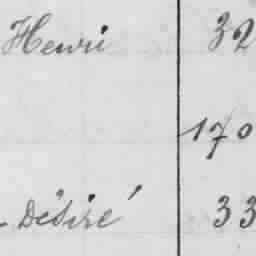 Henri 32
170
Désiré 33